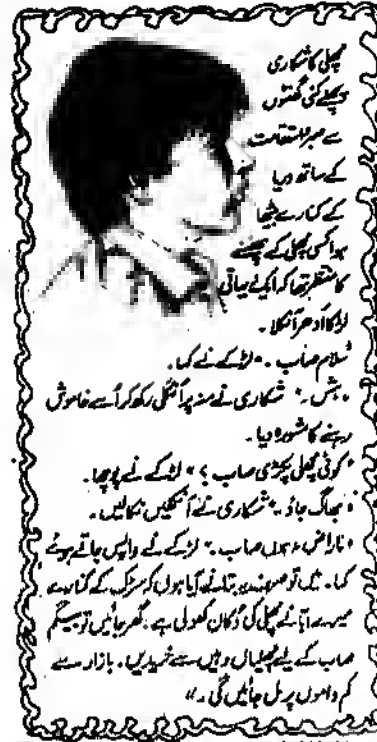 مچھلی کا شکاری
پچھلے کئی گھنٹوں
سے صبر و استقامت
کے ساتھ دریا
کے کنارے بیٹھا
ہوا کسی مچھلی کے پھنسنے
کا منتظر تھا کہ ایک دیہاتی
لڑکا ادھر آ نکلا۔
"سلام صاب۔" لڑکے نے کہا۔
"ہش۔" شکاری نے منہ پر انگلی رکھ کر اُسے خاموش
رہنے کا مشورہ دیا۔
"کوئی مچھلی پکڑی صاب؟" لڑکے نے پوچھا۔
"بھاگ جاؤ۔" شکاری نے آنکھیں نکالیں۔
"ناراض نہ ہوں صاب۔" لڑکے نے واپس جاتے ہوئے
کہا۔ میں تو صرف یہ بتانے آیا ہوں کہ سڑک کے کنارے
میرے ابا نے مچھلی کی دکان کھولی ہے، گھر جائیں تو بیگم
صاب کے لیے مچھلیاں وہیں سے خریدیں۔ بازار سے
کم داموں پر مل جائیں گی۔"